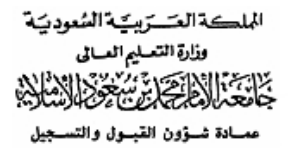 المملكة العربية السعودية
وزارة التعليم العالى
جامعة الإمام محمد بن سعود الإسلامية
عمادة شؤون القبول والتسجيل